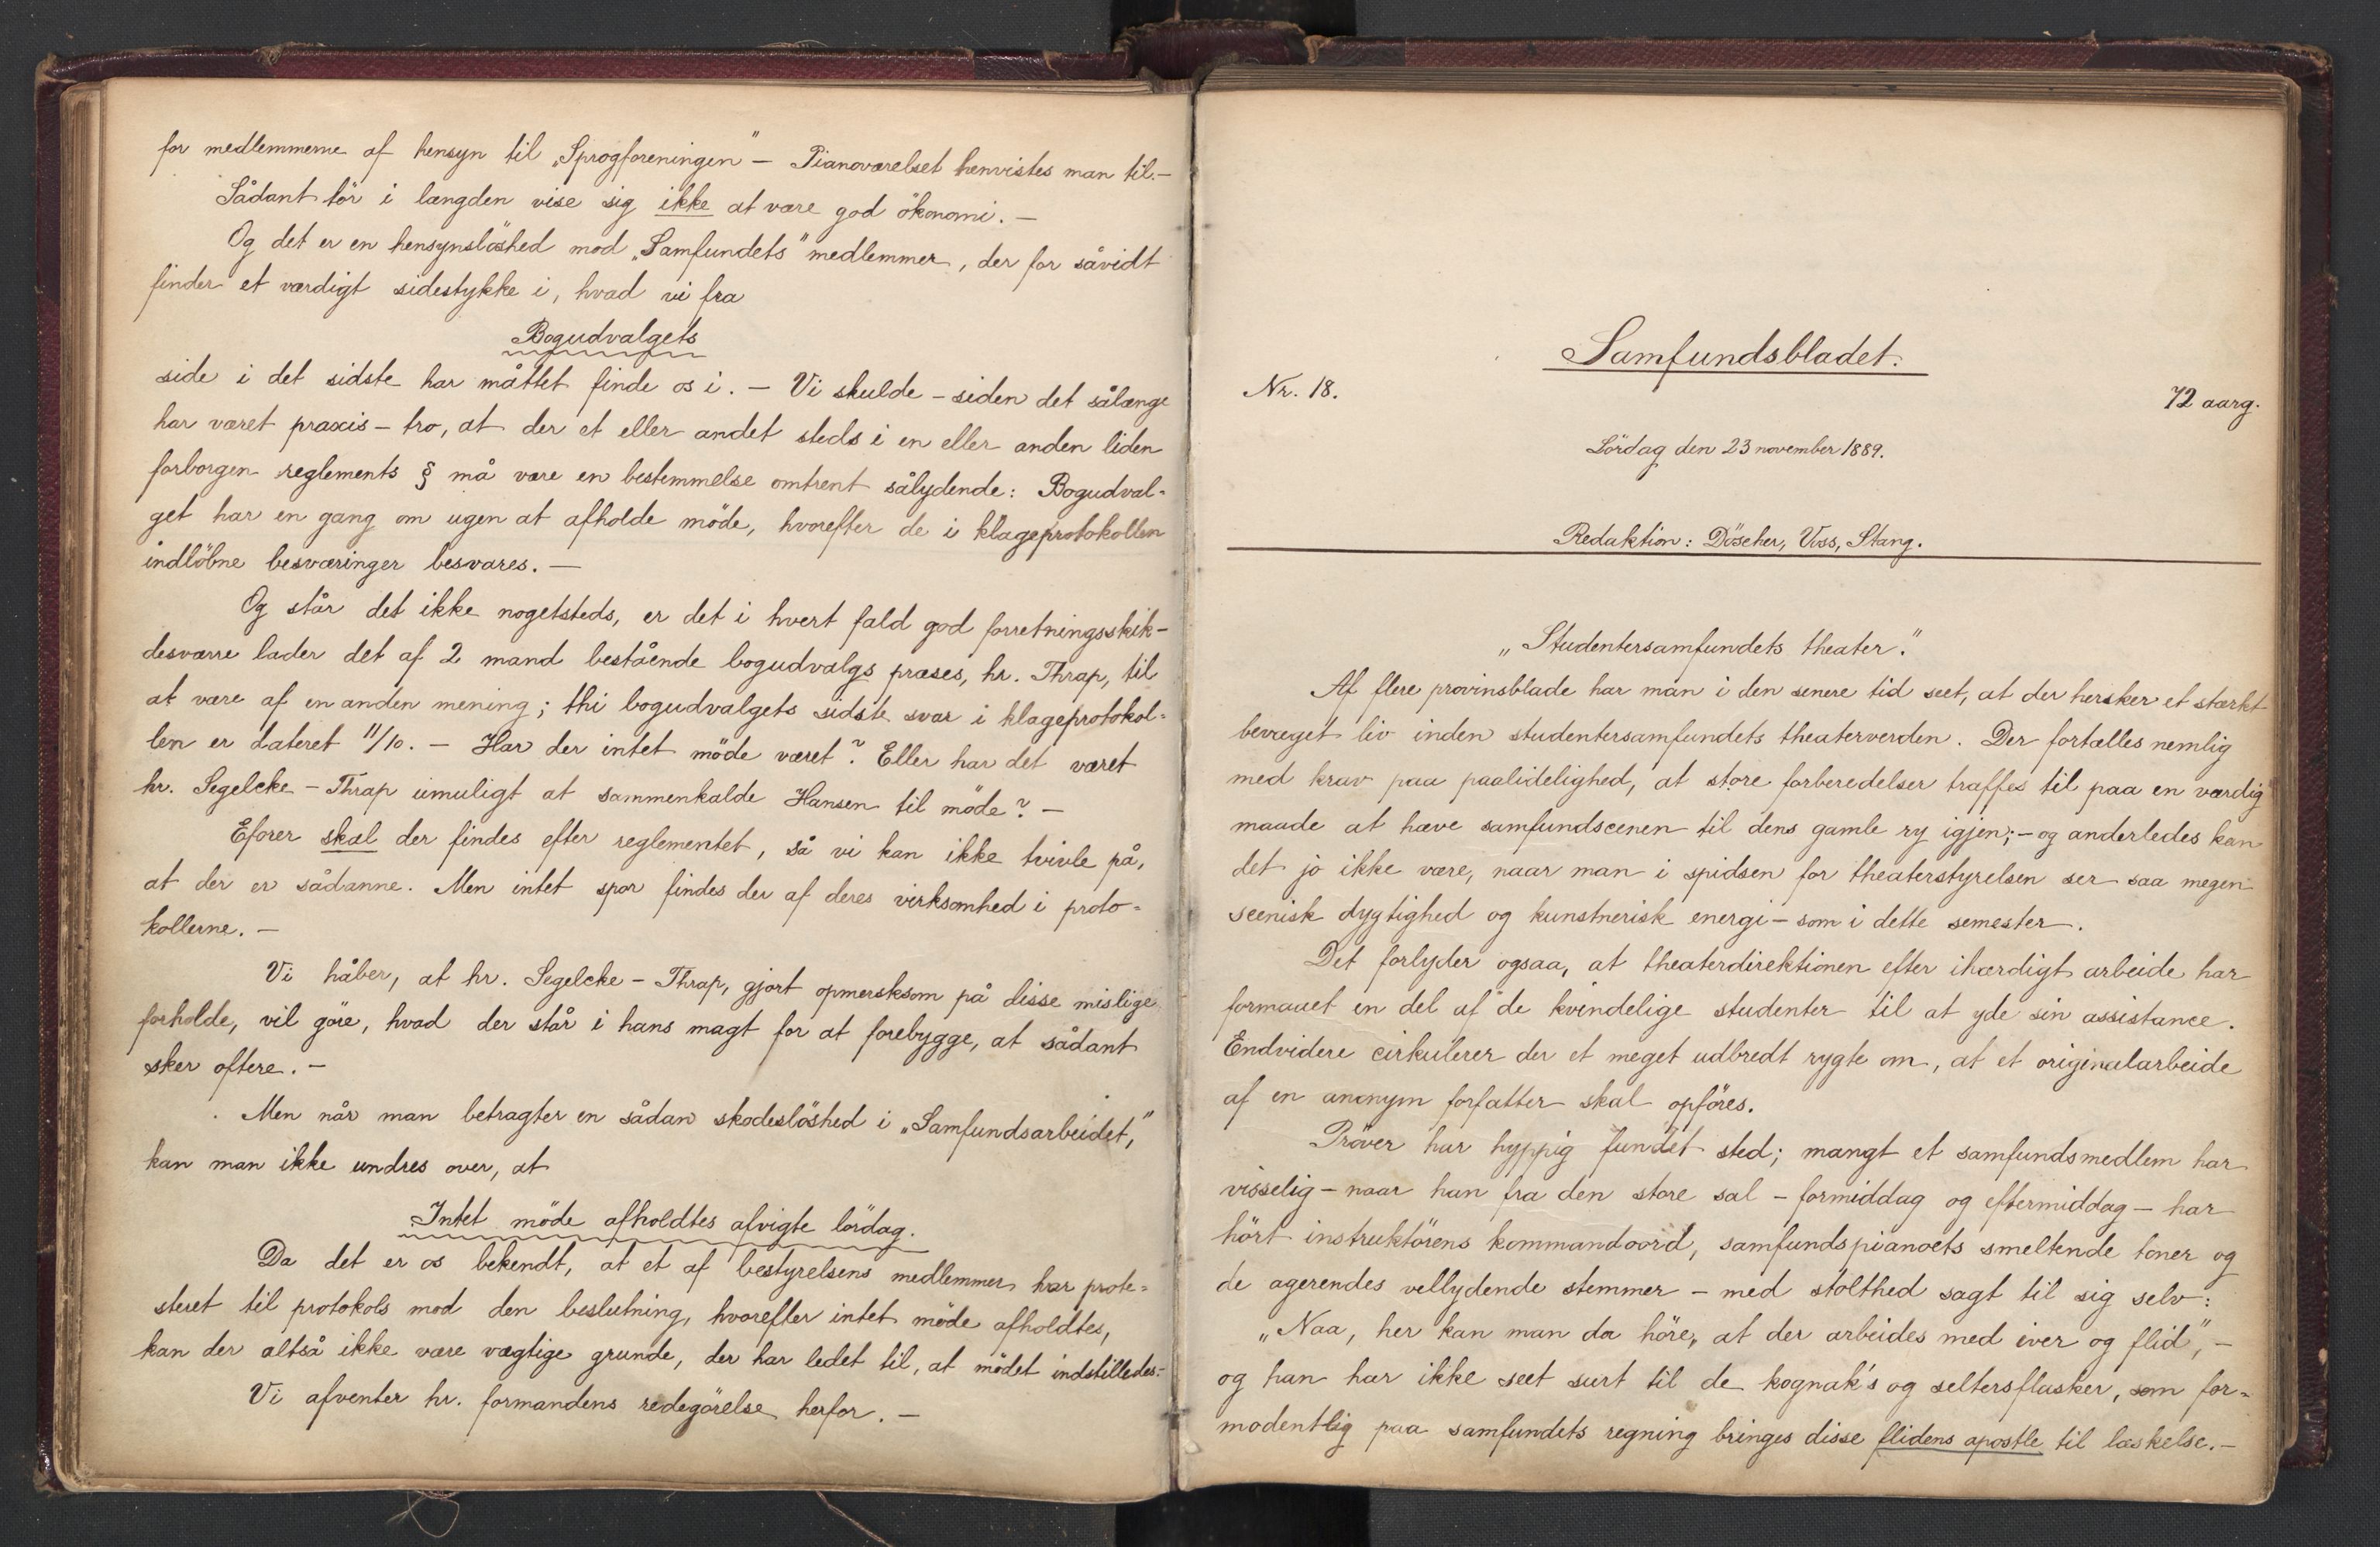 for medlemmerne af hensyn til „Sprogforeningen" – Pianoværelset henvistes man til. –
Sådant tör i længden vise sig ikke at være god ökonomi. –
Og det er en hensynslöshed mod „Samfundets" medlemmer, der for såvidt
finder et værdigt sidestykke i, hvad vi fra
Bogudvalgets
side i det sidste har måttet finde os i. – Vi skulde – siden det sålænge
har været praxis – tro, at der et eller andet steds i en eller anden liden
forborgen reglements § må være en bestemmelse omtrent sålydende: Bogudval-
get har en gang om ugen at afholde möde, hvorefter de i klageprotokollen
indlöbne besværinger besvares. –
Og står det ikke nogetsteds, er det i hvert fald god forretningsskik –
desværre lader det af 2 mand bestående bogudvalgs præses, hr. Thrap, til
at være af en anden mening; thi bogudvalgets sidste svar i klageprotokol-
len er dateret 11/10. – Har der intet möde været? Eller har det været
hr. Segelcke – Thrap umuligt at sammenkalde Hansen til möde? –
Eforer skal der findes efter reglementet, så vi kan ikke tvivle på,
at der er sådanne. Men intet spor findes der af deres virksomhed i proto-
kollerne. –
Vi håber, at hr. Segelcke – Thrap, gjort opmerksom på disse mislige
forholde, vil göre, hvad der står i hans magt for at forebygge, at sådant
sker oftere. –
Men når man betragter en sådan skodeslöshed i „Samfundsarbeidet,"
kan man ikke undres over, at
Intet möde afholdtes afvigte lördag.
Da det er os bekendt, at et af bestyrelsens medlemmer har prote-
steret til protokols mod den beslutning, hvorefter intet möde afholdtes,
kan der altså ikke være vægtige grunde, der har ledet til, at mödet indstilledes. –
Vi afventer hr. formandens redegörelse herfor. –
Samfundsbladet.
Nr. 18.
72 aarg.
Lördag den 23 november 1889.
Redaktion: Döscher, Voss, Stang.
„Studentersamfundets theater."
Af flere provinsblade har man i den senere tid seet, at der hersker et stærkt
bevæget liv inden studentersamfundets theaterverden. Der fortælles nemlig
med krav paa paalidelighed, at store forberedelser træffes til paa en værdig
maade at hæve samfundscenen til dens gamle ry igjen; – og anderledes kan
det jo ikke være, naar man i spidsen for theaterstyrelsen ser saa megen
scenisk dygtighed og kunstnerisk energi – som i dette semester.
Det forlyder ogsaa, at theaterdirektionen efter ihærdigt arbeide har
formaaet en del af de kvindelige studenter til at yde sin assistance.
Endvidere cirkulerer der et meget udbredt rygte om, at et originalarbeide
af en anonym forfatter skal opföres.
Pröver har hyppig fundet sted; mangt et samfundsmedlem har
visselig – naar han fra den store sal – formiddag og eftermiddag – har
hört instruktörens kommandoord, samfundspianoets smeltende toner og
de agerendes vellydende stemmer – med stolthed sagt til sig selv:
„Naa, her kan man da höre, at der arbeides med iver og flid", –
og han har ikke seet surt til de kognak's og seltersflasker, som for-
modentlig paa samfundets regning bringes disse flidens apostle til læskelse. –